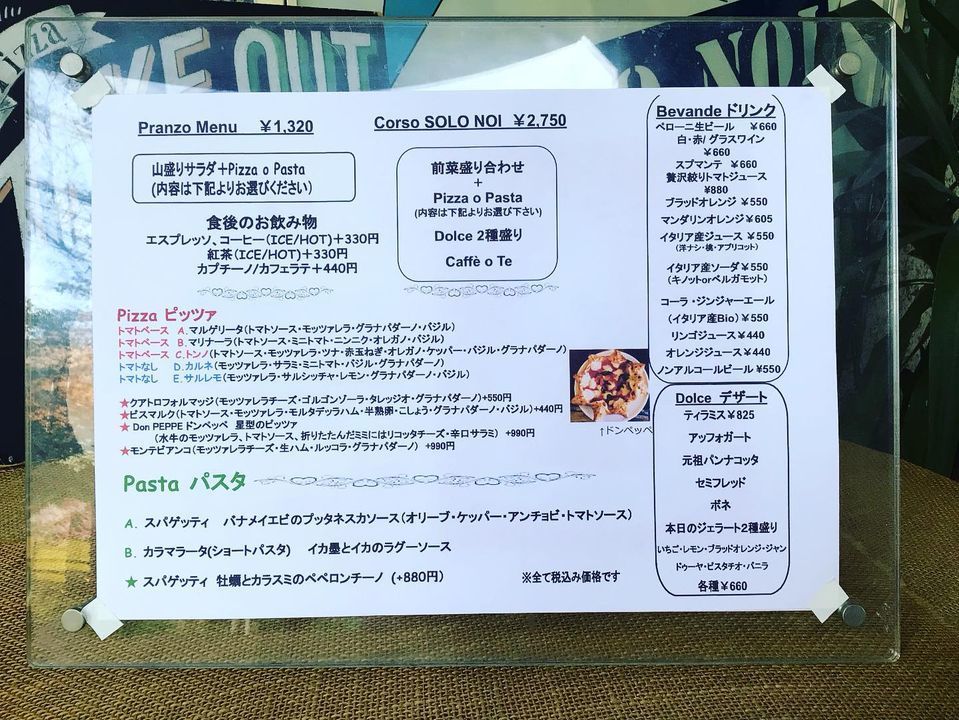 Pizza
KE OUT
NOI
Pranzo Menu ¥1,320
山盛りサラダ+Pizza o Pasta
(内容は下記よりお選びください)
食後のお飲み物
エスプレッソ、コーヒー(ICE/HOT)+330円
紅茶(ICE/HOT)+330円
カプチーノ/カフェラテ+440円
Corso SOLO NOI ¥2,750
前菜盛り合わせ
+
Pizza o Pasta
(内容は下記よりお選び下さい)
Dolce 2種盛り
Caffè o Te
Pizza ピッツァ
トマトベース A.マルゲリータ(トマトソース・モッツァレラ・グラナパダーノ・バジル)
トマトベース B.マリナーラ(トマトソース・ミニトマト・ニンニク・オレガノ・バジル)
トマトベース C.トンノ(トマトソース・モッツァレラ・ツナ・赤玉ねぎ・オレガノ・ケッパー・バジル・グラナパダーノ)
トマトなし D.カルネ(モッツァレラ・サラミ・ミニトマト・バジル・グラナパダーノ)
トマトなし E.サルレモ(モッツァレラ・サルシッチャ・レモン・グラナパダーノ・バジル)
★クアトロフォルマッジ(モッツァレラチーズ・ゴルゴンゾーラ・タレッジオ・グラナパダーノ)+550円
★ビスマルク(トマトソース・モッツァレラ・モルタデッラハム・半熟卵・こしょう・グラナパダーノ・バジル)+440円
★ Don PEPPE ドンペッペ 星型のピッツァ
(水牛のモッツァレラ、トマトソース、折りたたんだミミにはリコッタチーズ・辛口サラミ) +990円
★モンテビアンコ(モッツァレラチーズ・生ハム・ルッコラ・グラナパダーノ) +990円
↑ドンペッペ
Pasta パスタ
A. スパゲッティ バナメイエビのプッタネスカソース(オリーブ・ケッパー・アンチョビ・トマトソース)
B. カラマラータ(ショートパスタ) イカ墨とイカのラグーソース
★ スパゲッティ 牡蠣とカラスミのペペロンチーノ (+880円)
※全て税込み価格です
Bevande ドリンク
ペローニ生ビール ¥660
白・赤/グラスワイン
¥660
スプマンテ ¥660
贅沢絞りトマトジュース
¥880
ブラッドオレンジ ¥550
マンダリンオレンジ ¥605
イタリア産ジュース ¥550
(洋ナシ・桃・アプリコット)
イタリア産ソーダ ¥550
(キノットorベルガモット)
コーラ・ジンジャーエール
(イタリア産Bio) ¥550
リンゴジュース ¥440
オレンジジュース ¥440
ノンアルコールビール ¥550
Dolce デザート
ティラミス ¥825
アッフォガート
元祖パンナコッタ
セミフレッド
ボネ
本日のジェラート2種盛り
いちご・レモン・ブラッドオレンジ・ジャン
ドゥーヤ・ピスタチオ・バニラ
各種 ¥660